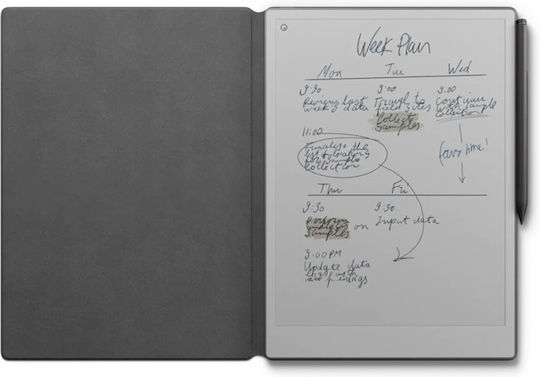 Week Plan
Mon Tue Wed
9:30
Review last
week's data
11:00
Finalise the
list & locations
for sample
collection
9:00
Travel to
field sites
Collect
samples
9:00
Continue
with sample
collection
Thu Fri
9:30
Perform
on
samples
3:00PM
Update data
new findings
9:30
Input data